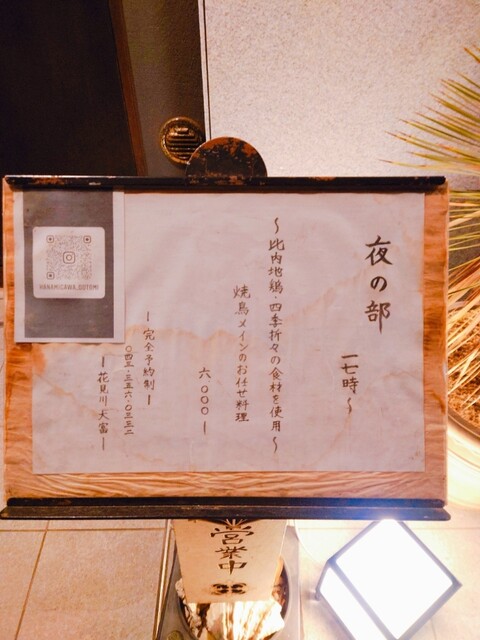 夜の部
一七時〜
〜比内地鶏・四季折々の食材を使用〜
焼鳥メインのお任せ料理
六〇〇〇ー
ー完全予約制ー
〇四三・三五六・〇三三二
ー花見川 天富ー
HANAMIGAWA.GOTOMI
営業中